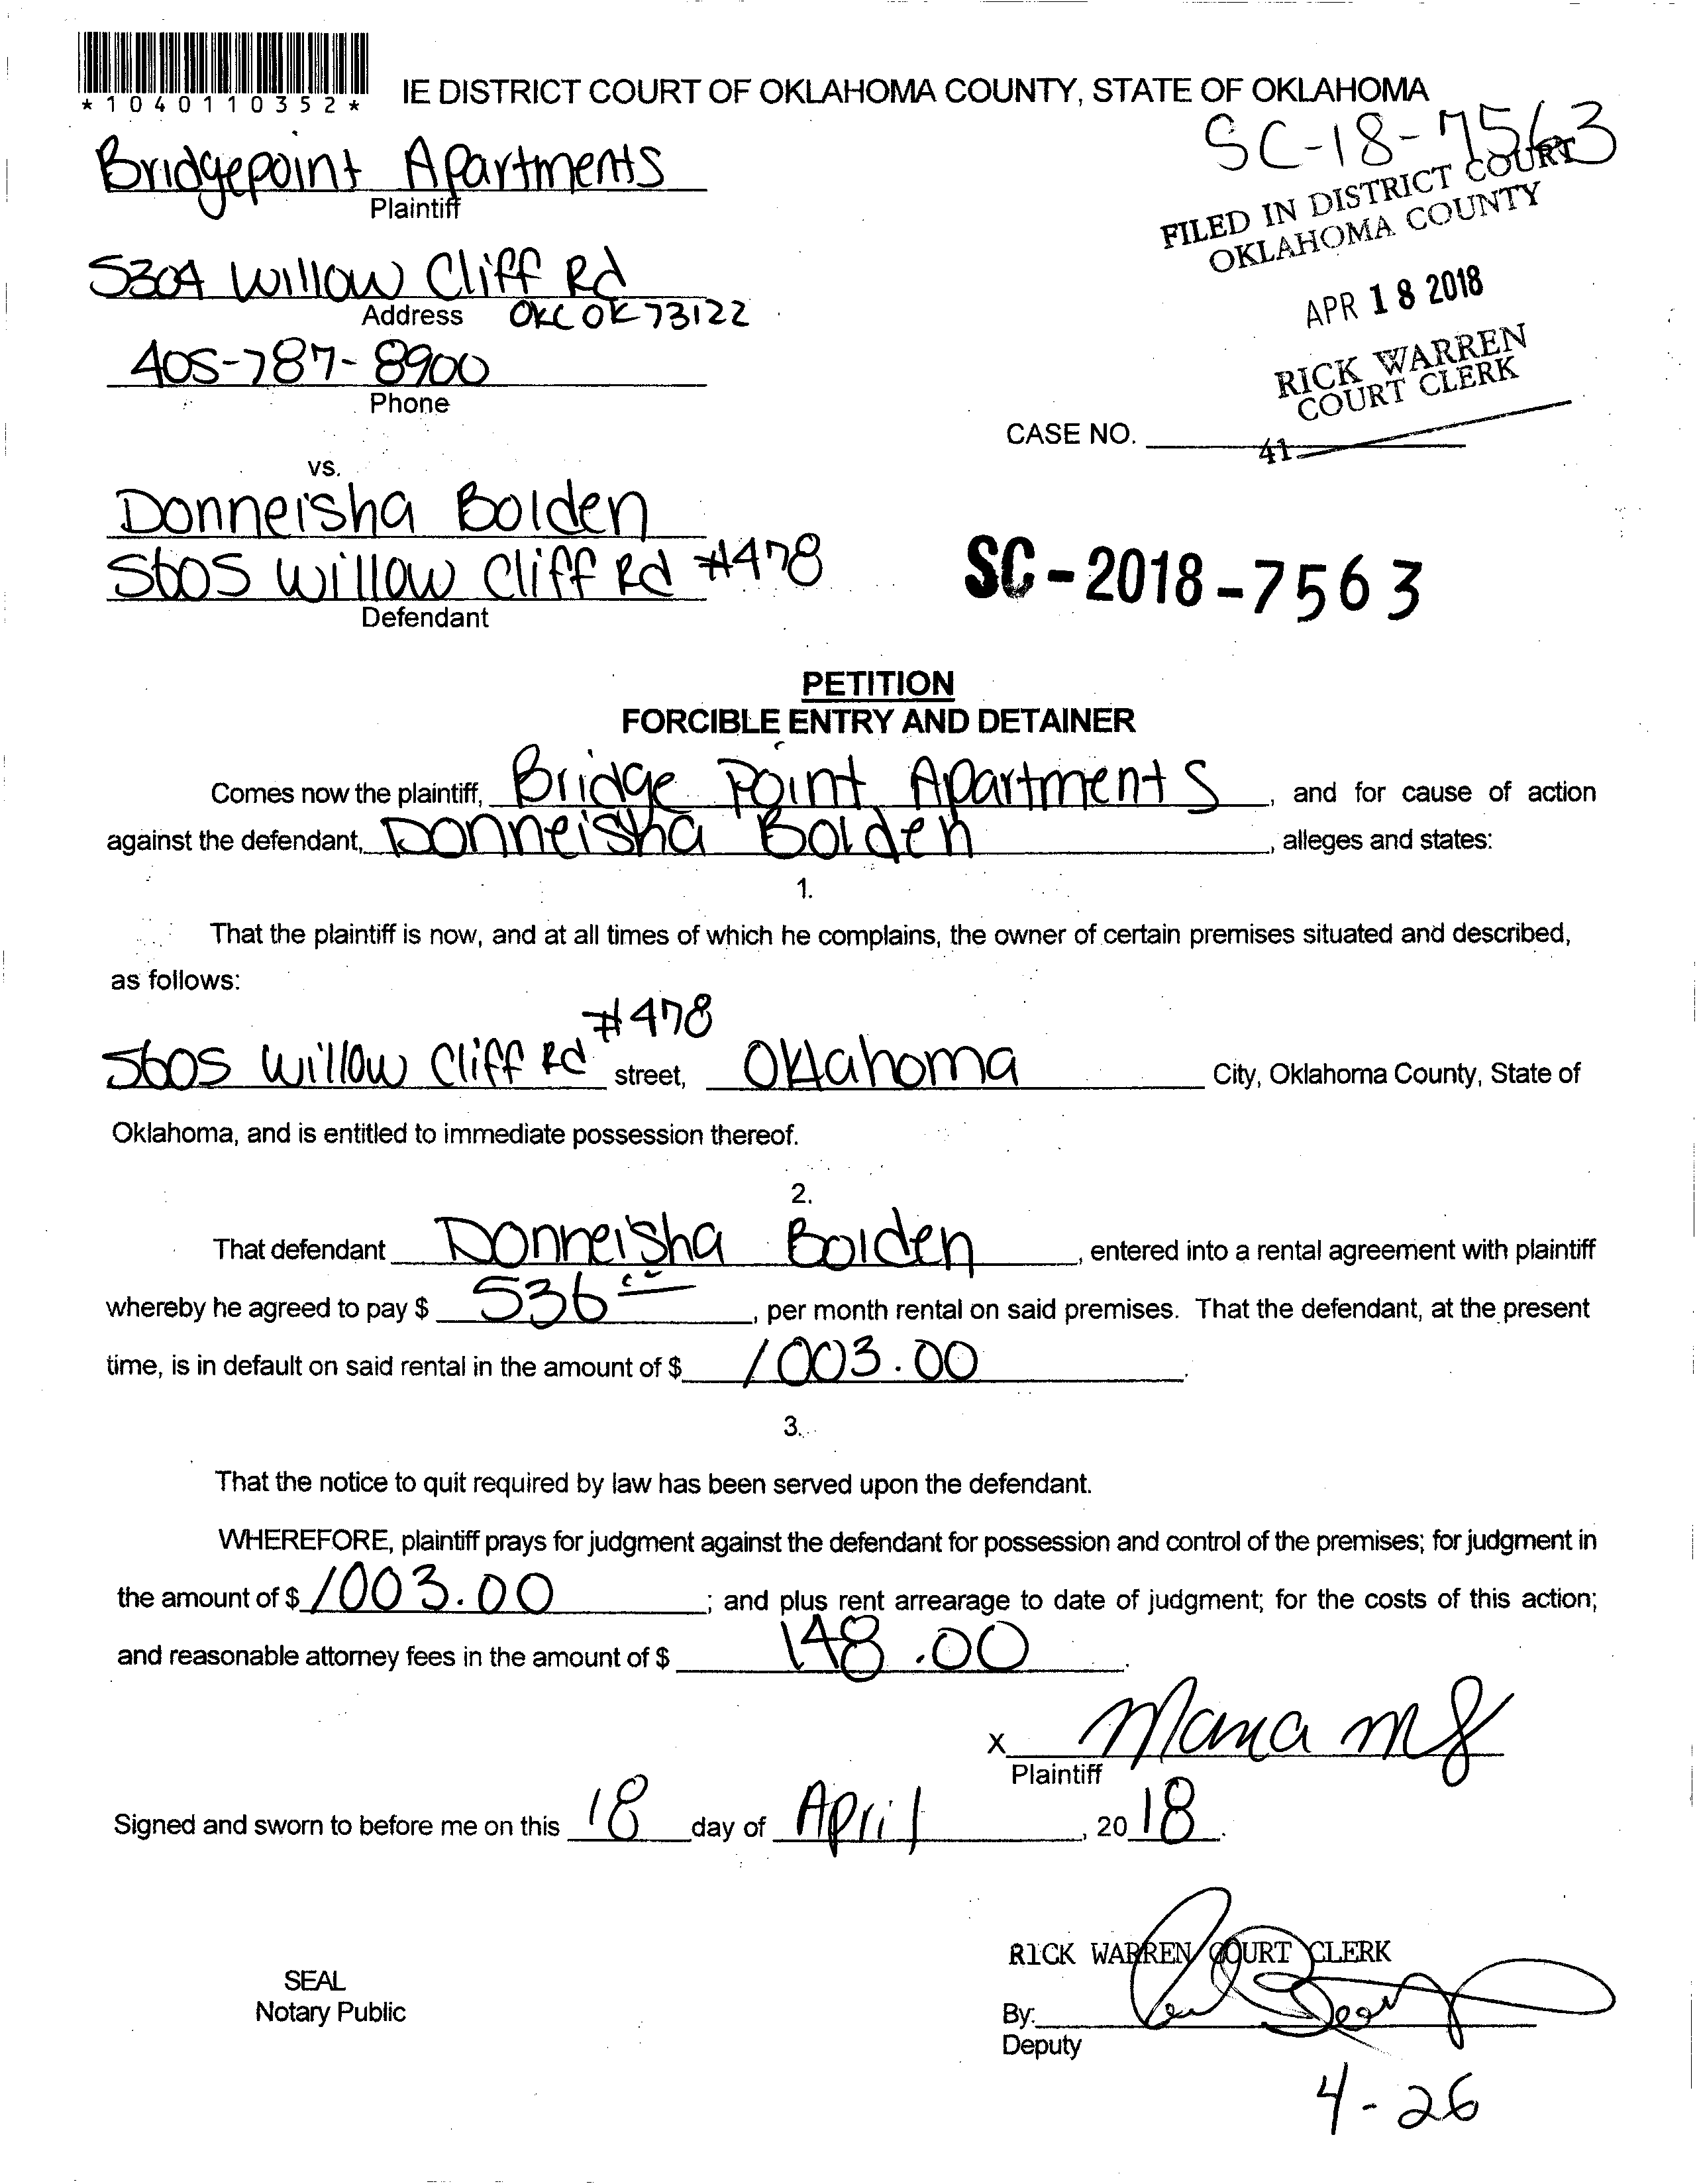 *1040110352*
IE DISTRICT COURT OF OKLAHOMA COUNTY, STATE OF OKLAHOMA
SC-18-7563
Bridgepoint Apartments
Plaintiff
FILED IN DISTRICT COURT
OKLAHOMA COUNTY
5304 Willow Cliff Rd
Address OKC OK 73122
APR 18 2018
405-787-8900
Phone
RICK WARREN
COURT CLERK
CASE NO.
41
vs.
Donneisha Bolden
5605 Willow Cliff Rd #478
Defendant
SC-2018-7563
PETITION
FORCIBLE ENTRY AND DETAINER
Comes now the plaintiff, Bridge Point Apartments, and for cause of action
against the defendant, Donneisha Bolden, alleges and states:
1.
That the plaintiff is now, and at all times of which he complains, the owner of certain premises situated and described,
as follows:
#478
5605 Willow Cliff Rd street, Oklahoma City, Oklahoma County, State of
Oklahoma, and is entitled to immediate possession thereof.
2.
That defendant Donneisha Bolden, entered into a rental agreement with plaintiff
whereby he agreed to pay $ 536, per month rental on said premises. That the defendant, at the present
time, is in default on said rental in the amount of $ 1003.00.
3.
That the notice to quit required by law has been served upon the defendant.
WHEREFORE, plaintiff prays for judgment against the defendant for possession and control of the premises; for judgment in
the amount of $ 1003.00; and plus rent arrearage to date of judgment; for the costs of this action;
and reasonable attorney fees in the amount of $ 148.00.
X
Plaintiff
Signed and sworn to before me on this 18 day of April, 2018.
RICK WARREN COURT CLERK
SEAL
Notary Public
By:
Deputy
4-26